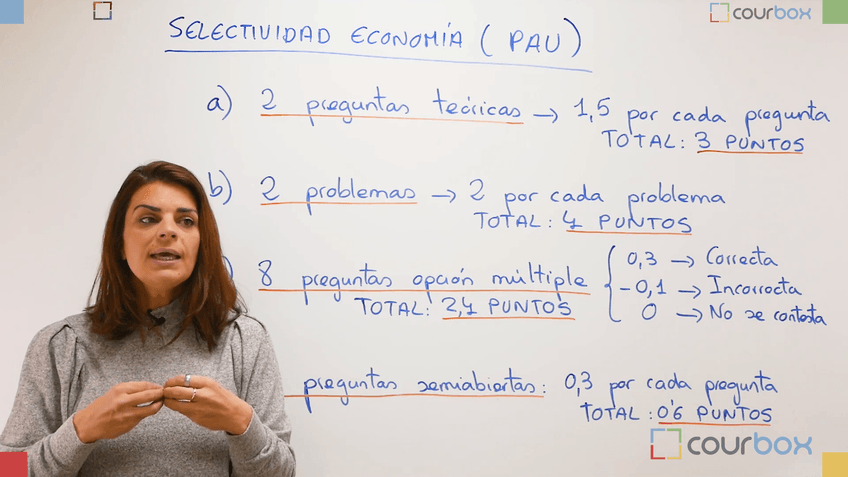 courbox
SELECTIVIDAD ECONOMÍA (PAU)
a) 2 preguntas teóricas → 1,5 por cada pregunta
TOTAL: 3 PUNTOS
b) 2 problemas → 2 por cada problema
TOTAL: 4 PUNTOS
) 8 preguntas opción múltiple { 0,3 → Correcta
-0,1 → Incorrecta
0 → No se contesta
TOTAL: 2,4 PUNTOS
preguntas semiabiertas: 0,3 por cada pregunta
TOTAL: 0'6 PUNTOS
courbox